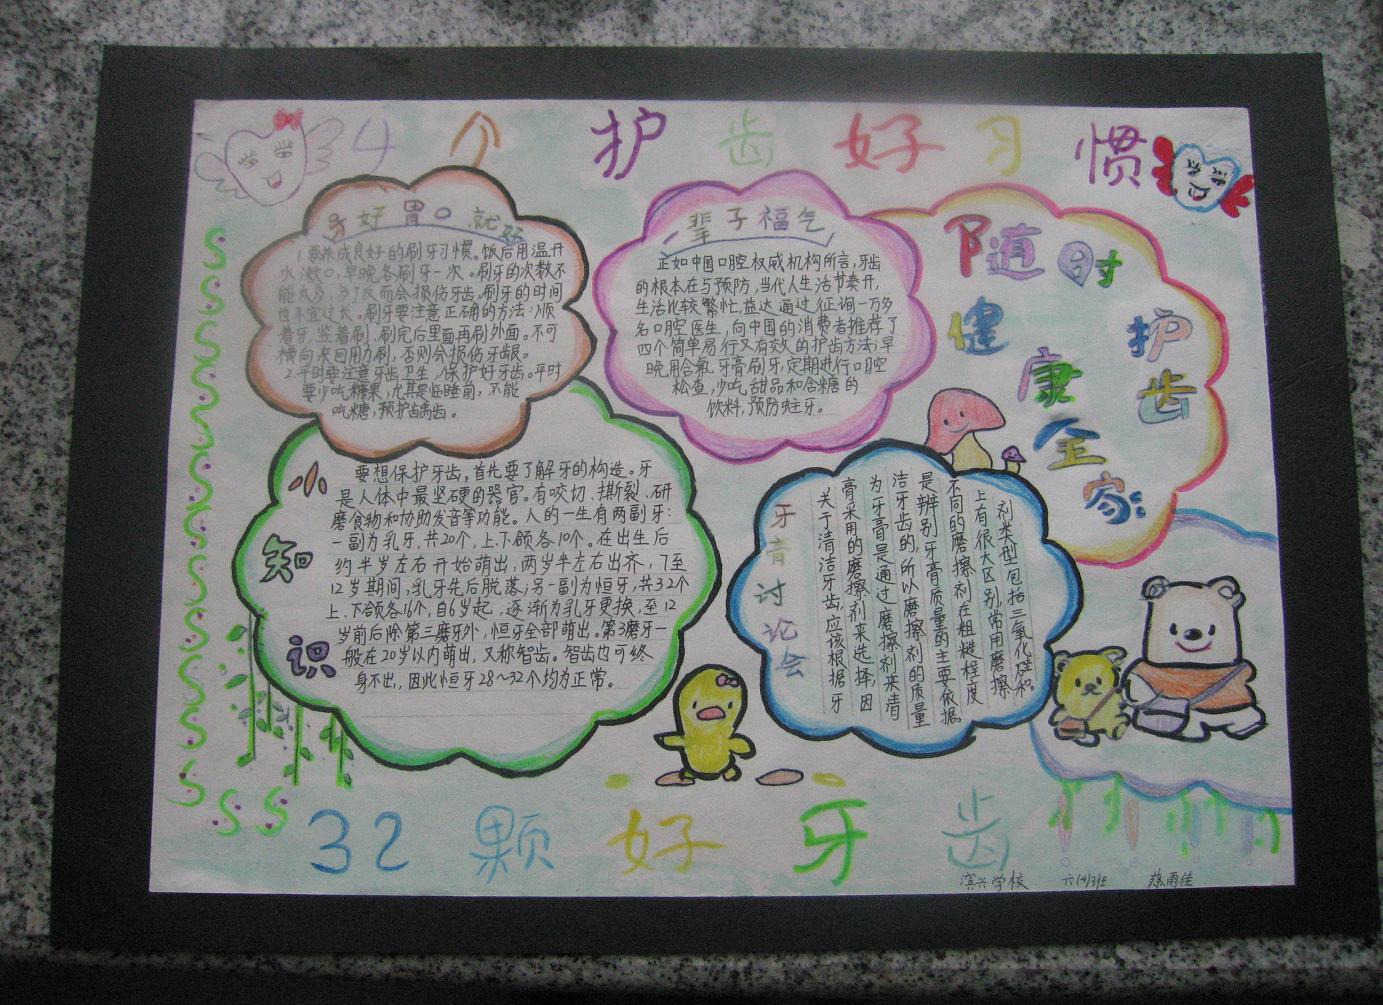 4个护齿好习惯
牙好胃口就好
1.要养成良好的刷牙习惯。饭后用温开
水漱口,早晚各刷牙一次。刷牙的次数不
能太多,多了反而会损伤牙齿。刷牙的时间
也不宜过长。刷牙要注意正确的方法:顺
着牙,竖着刷,刷完后里面再刷外面。不可
横向来回用力刷,否则会损伤牙龈。
2.平时要注意牙齿卫生,保护好牙齿。平时
要少吃糖果,尤其是临睡前,不能
吃糖,预护龋齿。
一辈子福气
正如中国口腔权威机构所言,牙齿
的根本在与预防,当代人生活节奏开,
生活比较繁忙,益达通过征询一万多
名口腔医生,向中国的消费者推荐了
四个简单易行又有效的护齿方法:早
晚用含氟牙膏刷牙,定期进行口腔
检查,少吃甜品和含糖的
饮料,预防蛀牙。
随时护齿
健康全家
小知识
要想保护牙齿,首先要了解牙的构造。牙
是人体中最坚硬的器官。有咬切、撕裂、研
磨食物和协助发音等功能。人的一生有两副牙:
一副为乳牙,共20个,上、下颌各10个。在出生后
约半岁左右开始萌出,两岁半左右出齐,7至
12岁期间,乳牙先后脱落;另一副为恒牙,共32个
上、下颌各16个,自6岁起,逐渐为乳牙更换,至12
岁前后除第三磨牙外,恒牙全部萌出。第3磨牙一
般在20岁以内萌出,又称智齿。智齿也可终
身不出,因此恒牙28~32个均为正常。
牙膏讨论会
关于清洁牙齿,应该根据牙
膏采用的磨擦剂来选择,因
为牙膏是通过磨擦剂来清
洁牙齿的,所以磨擦剂的质量
是辨别牙膏质量的主要依据。
不同的磨擦剂在粗糙程度
上有很大区别,常用磨擦
剂类型包括三氧化硅和
32颗好牙齿
滨兴学校 六(4)班 蔡雨佳